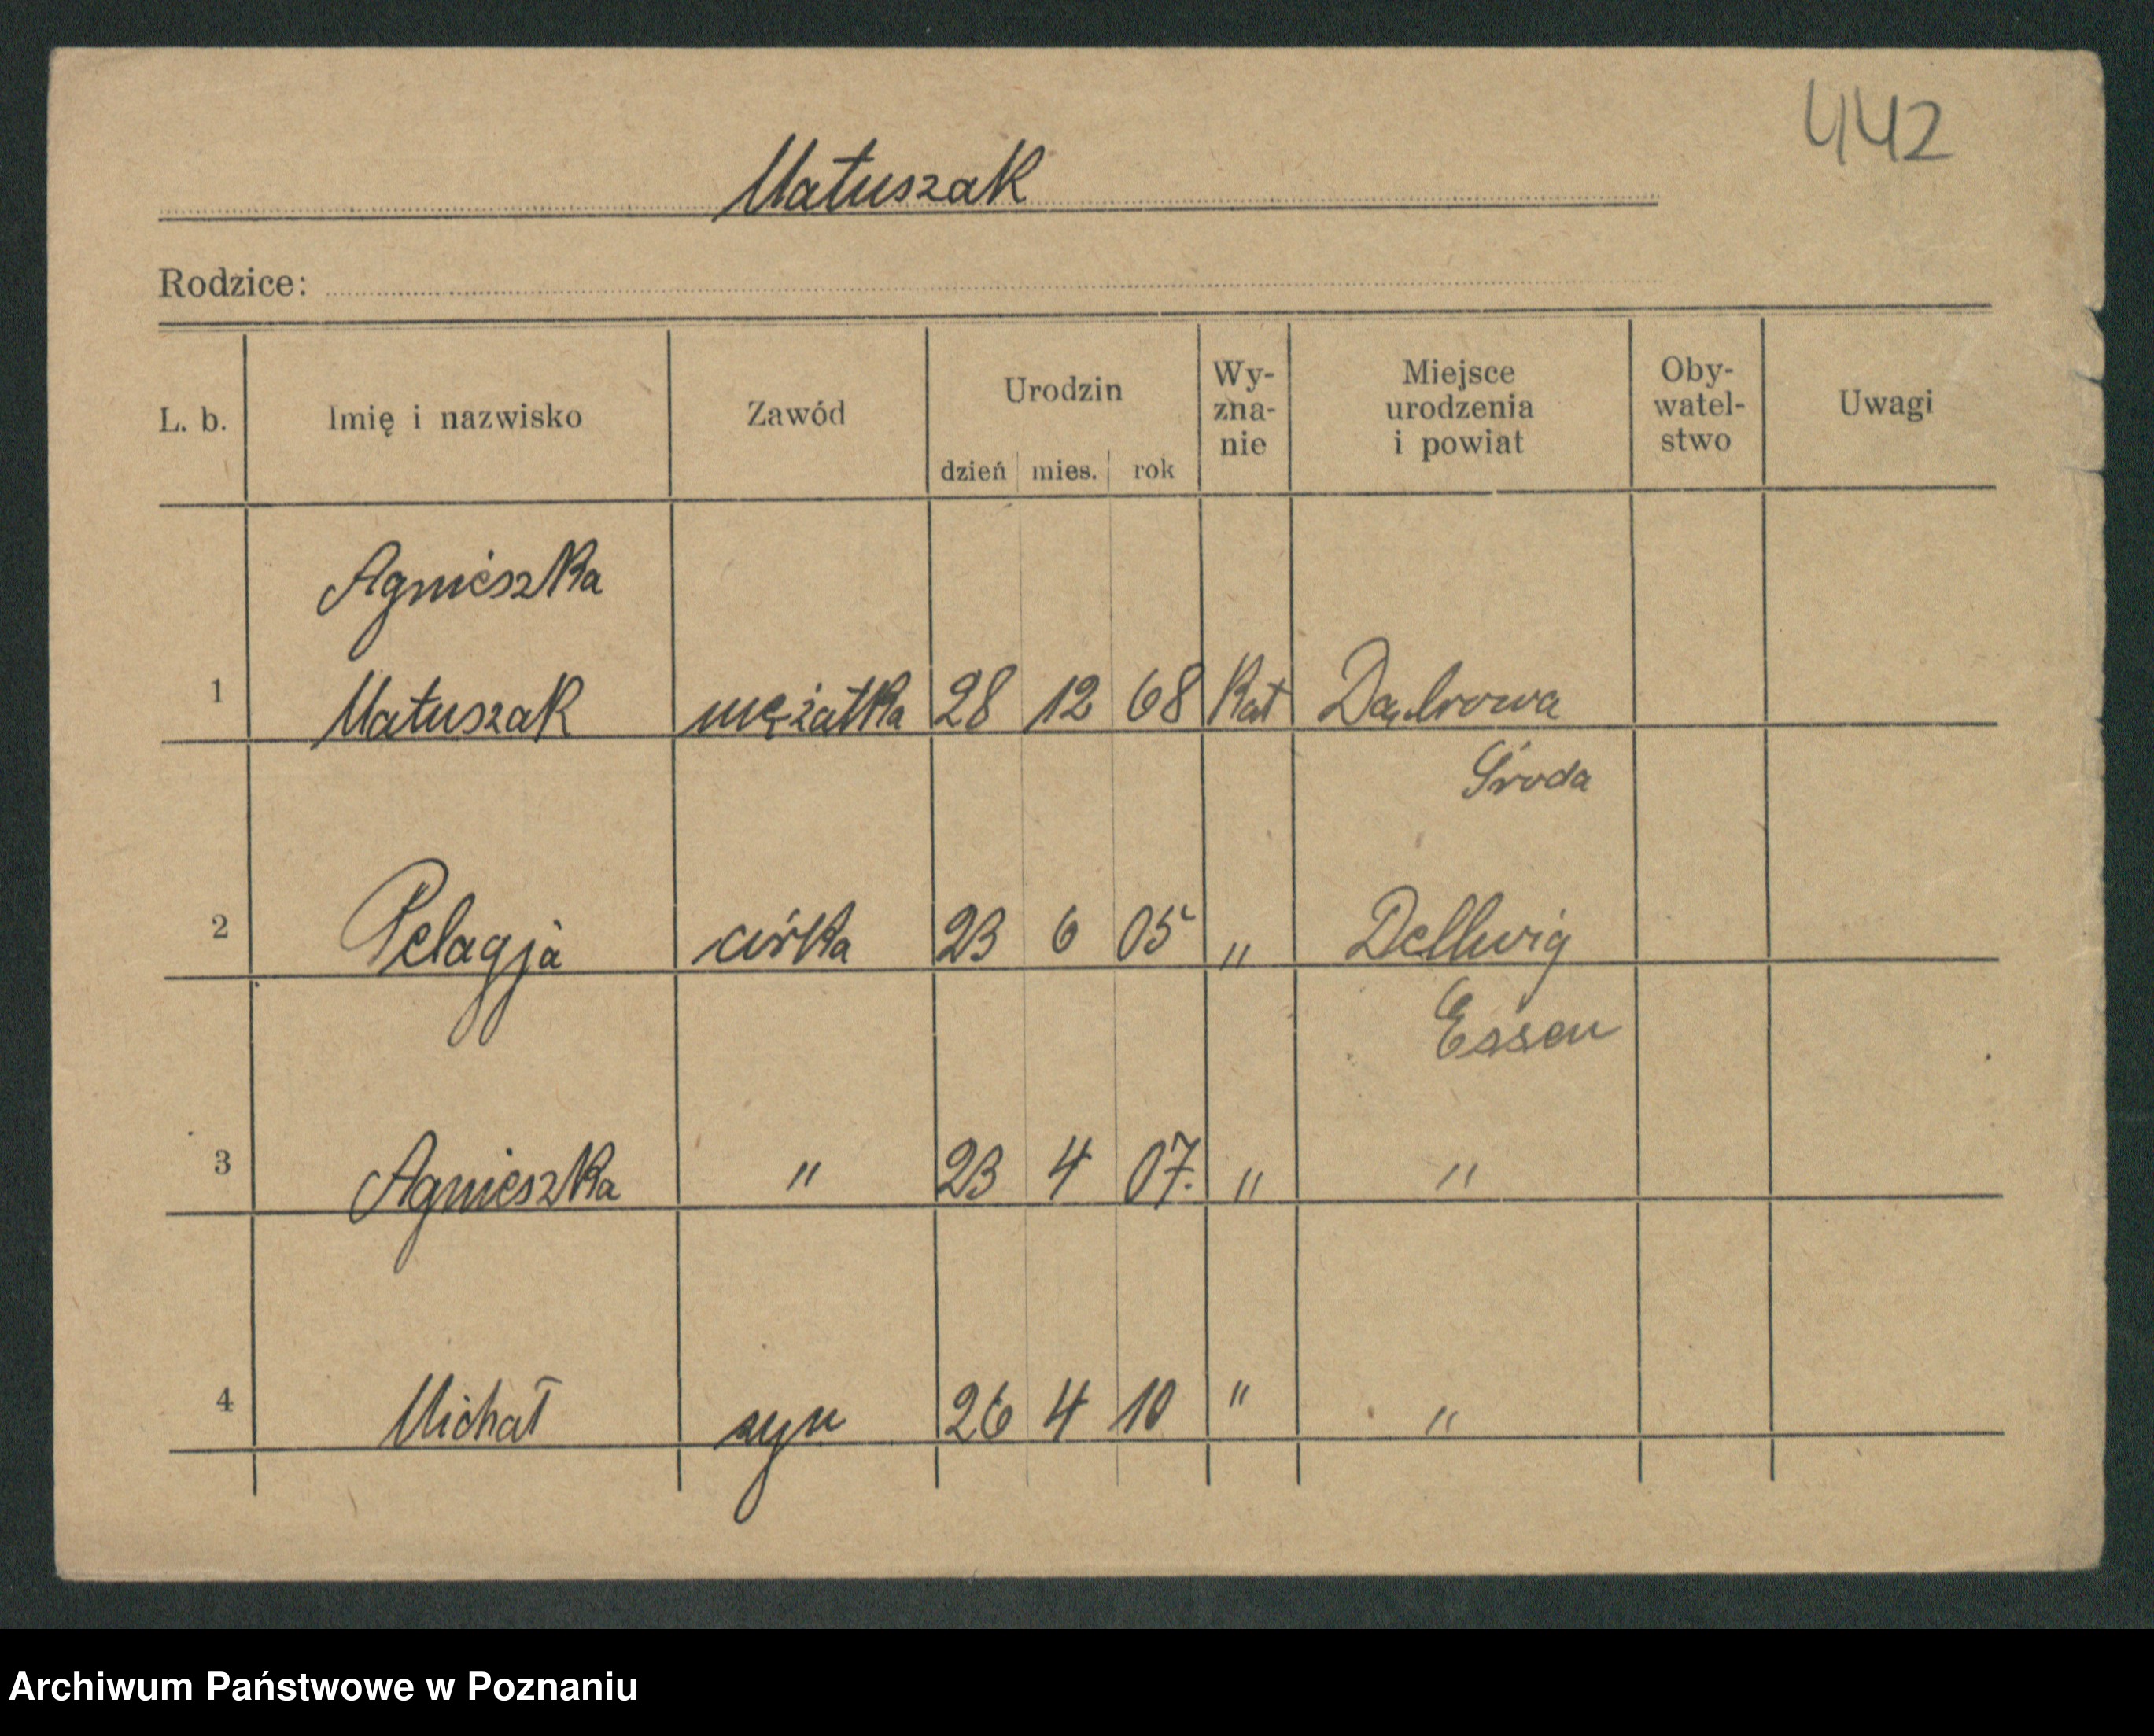 442
Matuszak
Rodzice:
L. b. Imię i nazwisko Zawód Urodzin dzień mies. rok Wy-zna-nie Miejsce urodzenia i powiat Oby-watel-stwo Uwagi
Agnieszka
1 Matuszak mężatka 28 12 68 Kat Dąbrowa
Środa
2 Pelagja córka 23 6 05 " Dellwig
Essen
3 Agnieszka " 23 4 07. " "
4 Michał syn 26 4 10 " "
Archiwum Państwowe w Poznaniu